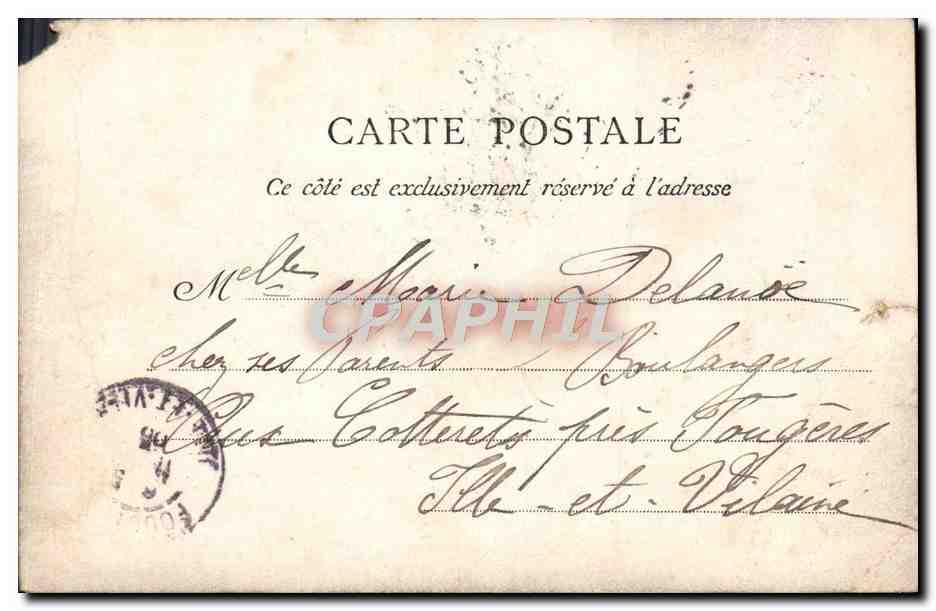 CARTE POSTALE
Ce côté est exclusivement réservé à l'adresse
Melle Marie Delanoë
chez ses Parents Boulangers
Aux Cotterets près Fougères
Ille-et-Vilaine
CPAPHIL